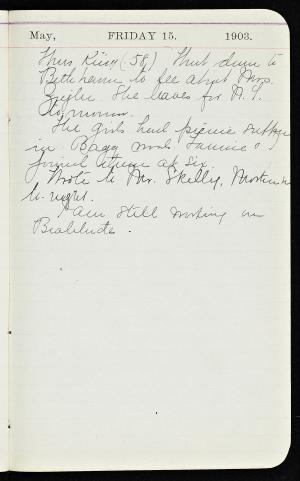 May, FRIDAY 15. 1903.
(58). Went down to
Bethhaven to see about Mrs.
Zeigler. She leaves for N. Y.
to-morrow.
The girls had picnic supper
in Bagg woods
joined them at six.
Wrote to Mr. Skelly,
to-night.
I am still working on
Beatitudes.